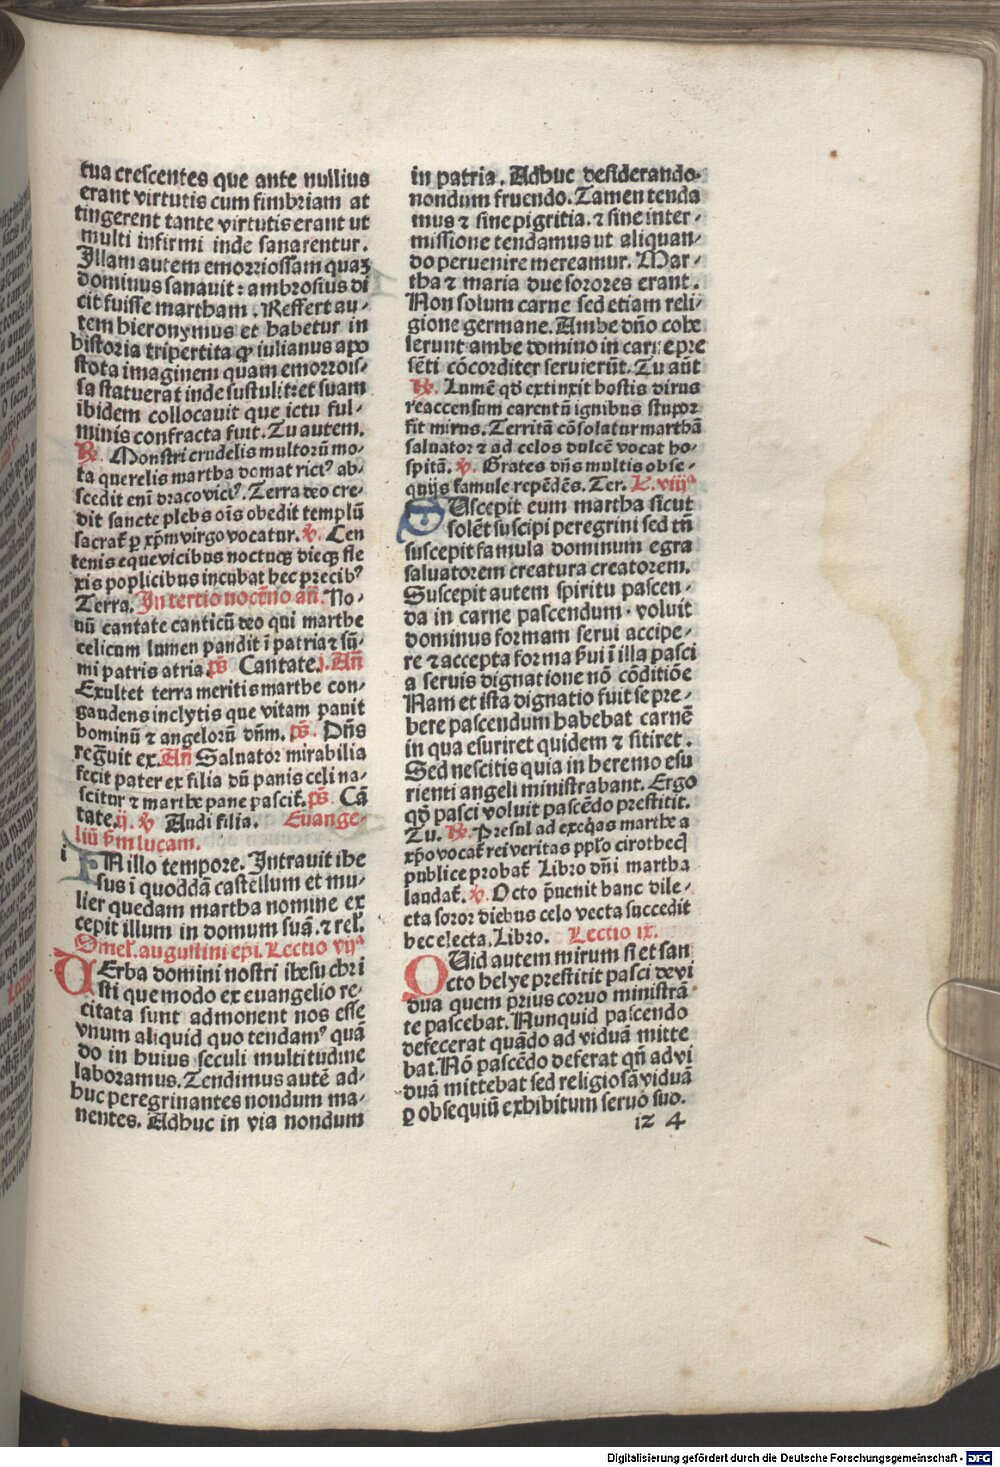 tua crescentes que ante nullius
erant virtutis cum fimbriam at
tingerent tante virtutis erant ut
multi infirmi inde sanarentur.
Illam autem emorriossam quaȝ
dominus sanauit: ambrosius di
cit fuisse martham. Reffert au⸗
tem hieronymus et habetur in
historia tripertita qꝫ iulianus apo
stota imaginem quam emorrois⸗
sa statuerat inde sustulit: et suam
ibidem collocauit que ictu ful⸗
minis confracta fuit. Tu autem.
℟. Monstri crudelis multorū mo⸗
ta querelis martha domat ricꝰ ab⸗
scedit enī draco vicꝰ. Terra deo cre⸗
dit sancte plebs oīs obedit templū
sacrat̄ ꝑ xp̄m virgo vocatur. ℣. Cen
tenis eque vicibus noctuqꝫ dieqꝫ fle
xis poplicibus incubat hec precibꝰ
Terra. In tertio noct̄no an̄. No⸗
uū cantate canticū deo qui marthe
celicum lumen pandit ī patria ⁊ sū⸗
mi patris atria. ps̄ Cantate. j. An̄
Exultet terra meritis marthe con⸗
gaudens inclytis que vitam pauit
hominū ⁊ angelorū dn̄m. ps̄. Dn̄s
regͣuit ex. An̄ Saluator mirabilia
fecit pater ex filia dū panis celi na⸗
scitur ⁊ marthe pane pascit̄. ps̄. Cā
tate. ij. ℣ Audi filia. Euange⸗
liū s̄m lucam.
i IN illo tempore. Intrauit ihe
sus ī quoddā castellum et mu⸗
lier quedam martha nomine ex
cepit illum in domum suā. ⁊ rel̄.
Omel̄. augustini ep̄i. Lectio vijᵃ
VErba domini nostri ihesu chri
sti que modo ex euangelio re⸗
citata sunt admonent nos esse
vnum aliquid quo tendamꝰ quā
do in huius seculi multitudine
laboramus. Tendimus autē ad⸗
huc peregrinantes nondum ma⸗
nentes. Adhuc in via nondum
in patria. Adhuc desiderando.
nondum fruendo. Tamen tenda
mus ⁊ sine pigritia. ⁊ sine inter⸗
missione tendamus ut aliquan⸗
do peruenire mereamur. Mar⸗
tha ⁊ maria due sorores erant.
Non solum carne sed etiam reli⸗
gione germane. Ambe dn̄o cohe
serunt ambe domino in carne pre
sēti cōcorditer seruierūt. Tu aūt
℟. Lumē qd̄ extinxit hostis dirus
reaccensum carentū ignibus stupor
fit mirus. Territā cōsolatur marthā
saluator ⁊ ad celos dulcē vocat ho⸗
spitā. ℣. Grates dn̄s multis obse⸗
quijs famule repēdēs. Ter. L. viijᵃ
SUscepit eum martha sicut
solēt suscipi peregrini sed tn̄
suscepit famula dominum egra
saluatorem creatura creatorem.
Suscepit autem spiritu pascen⸗
da in carne pascendum. voluit
dominus formam serui accipe⸗
re ⁊ accepta forma s̄ui ī illa pasci
a seruis dignatione nō cōditiōe
Nam et ista dignatio fuit se pre⸗
bere pascendum habebat carnē
in qua esuriret quidem ⁊ sitiret.
Sed nescitis quia in heremo esu
rienti angeli ministrabant. Ergo
qd̄ pasci voluit pascēdo prestitit.
Tu. ℟. Presul ad exeq̄as marthe a
xp̄o vocat̄ rei veritas pplo cirothecꝫ
publice probat̄ Libro dn̄i martha
laudat̄. ℣. Octo p̄uenit hanc dile⸗
cta soror diebus celo vecta succedit
hec electa. Libro. Lectio ix.
QUid autem mirum si et san
cto helye prestitit pasci de vi
dua quem prius coruo ministrā
te pascebat. Nunquid pascendo
defecerat quādo ad viduā mitte
bat. Nō pascēdo deferat qn̄ ad vi
duā mittebat sed religiosā viduā
ꝑ obsequiū exhibitum seruo suo.
iz 4
Digitalisierung gefördert durch die Deutsche Forschungsgemeinschaft - DFG